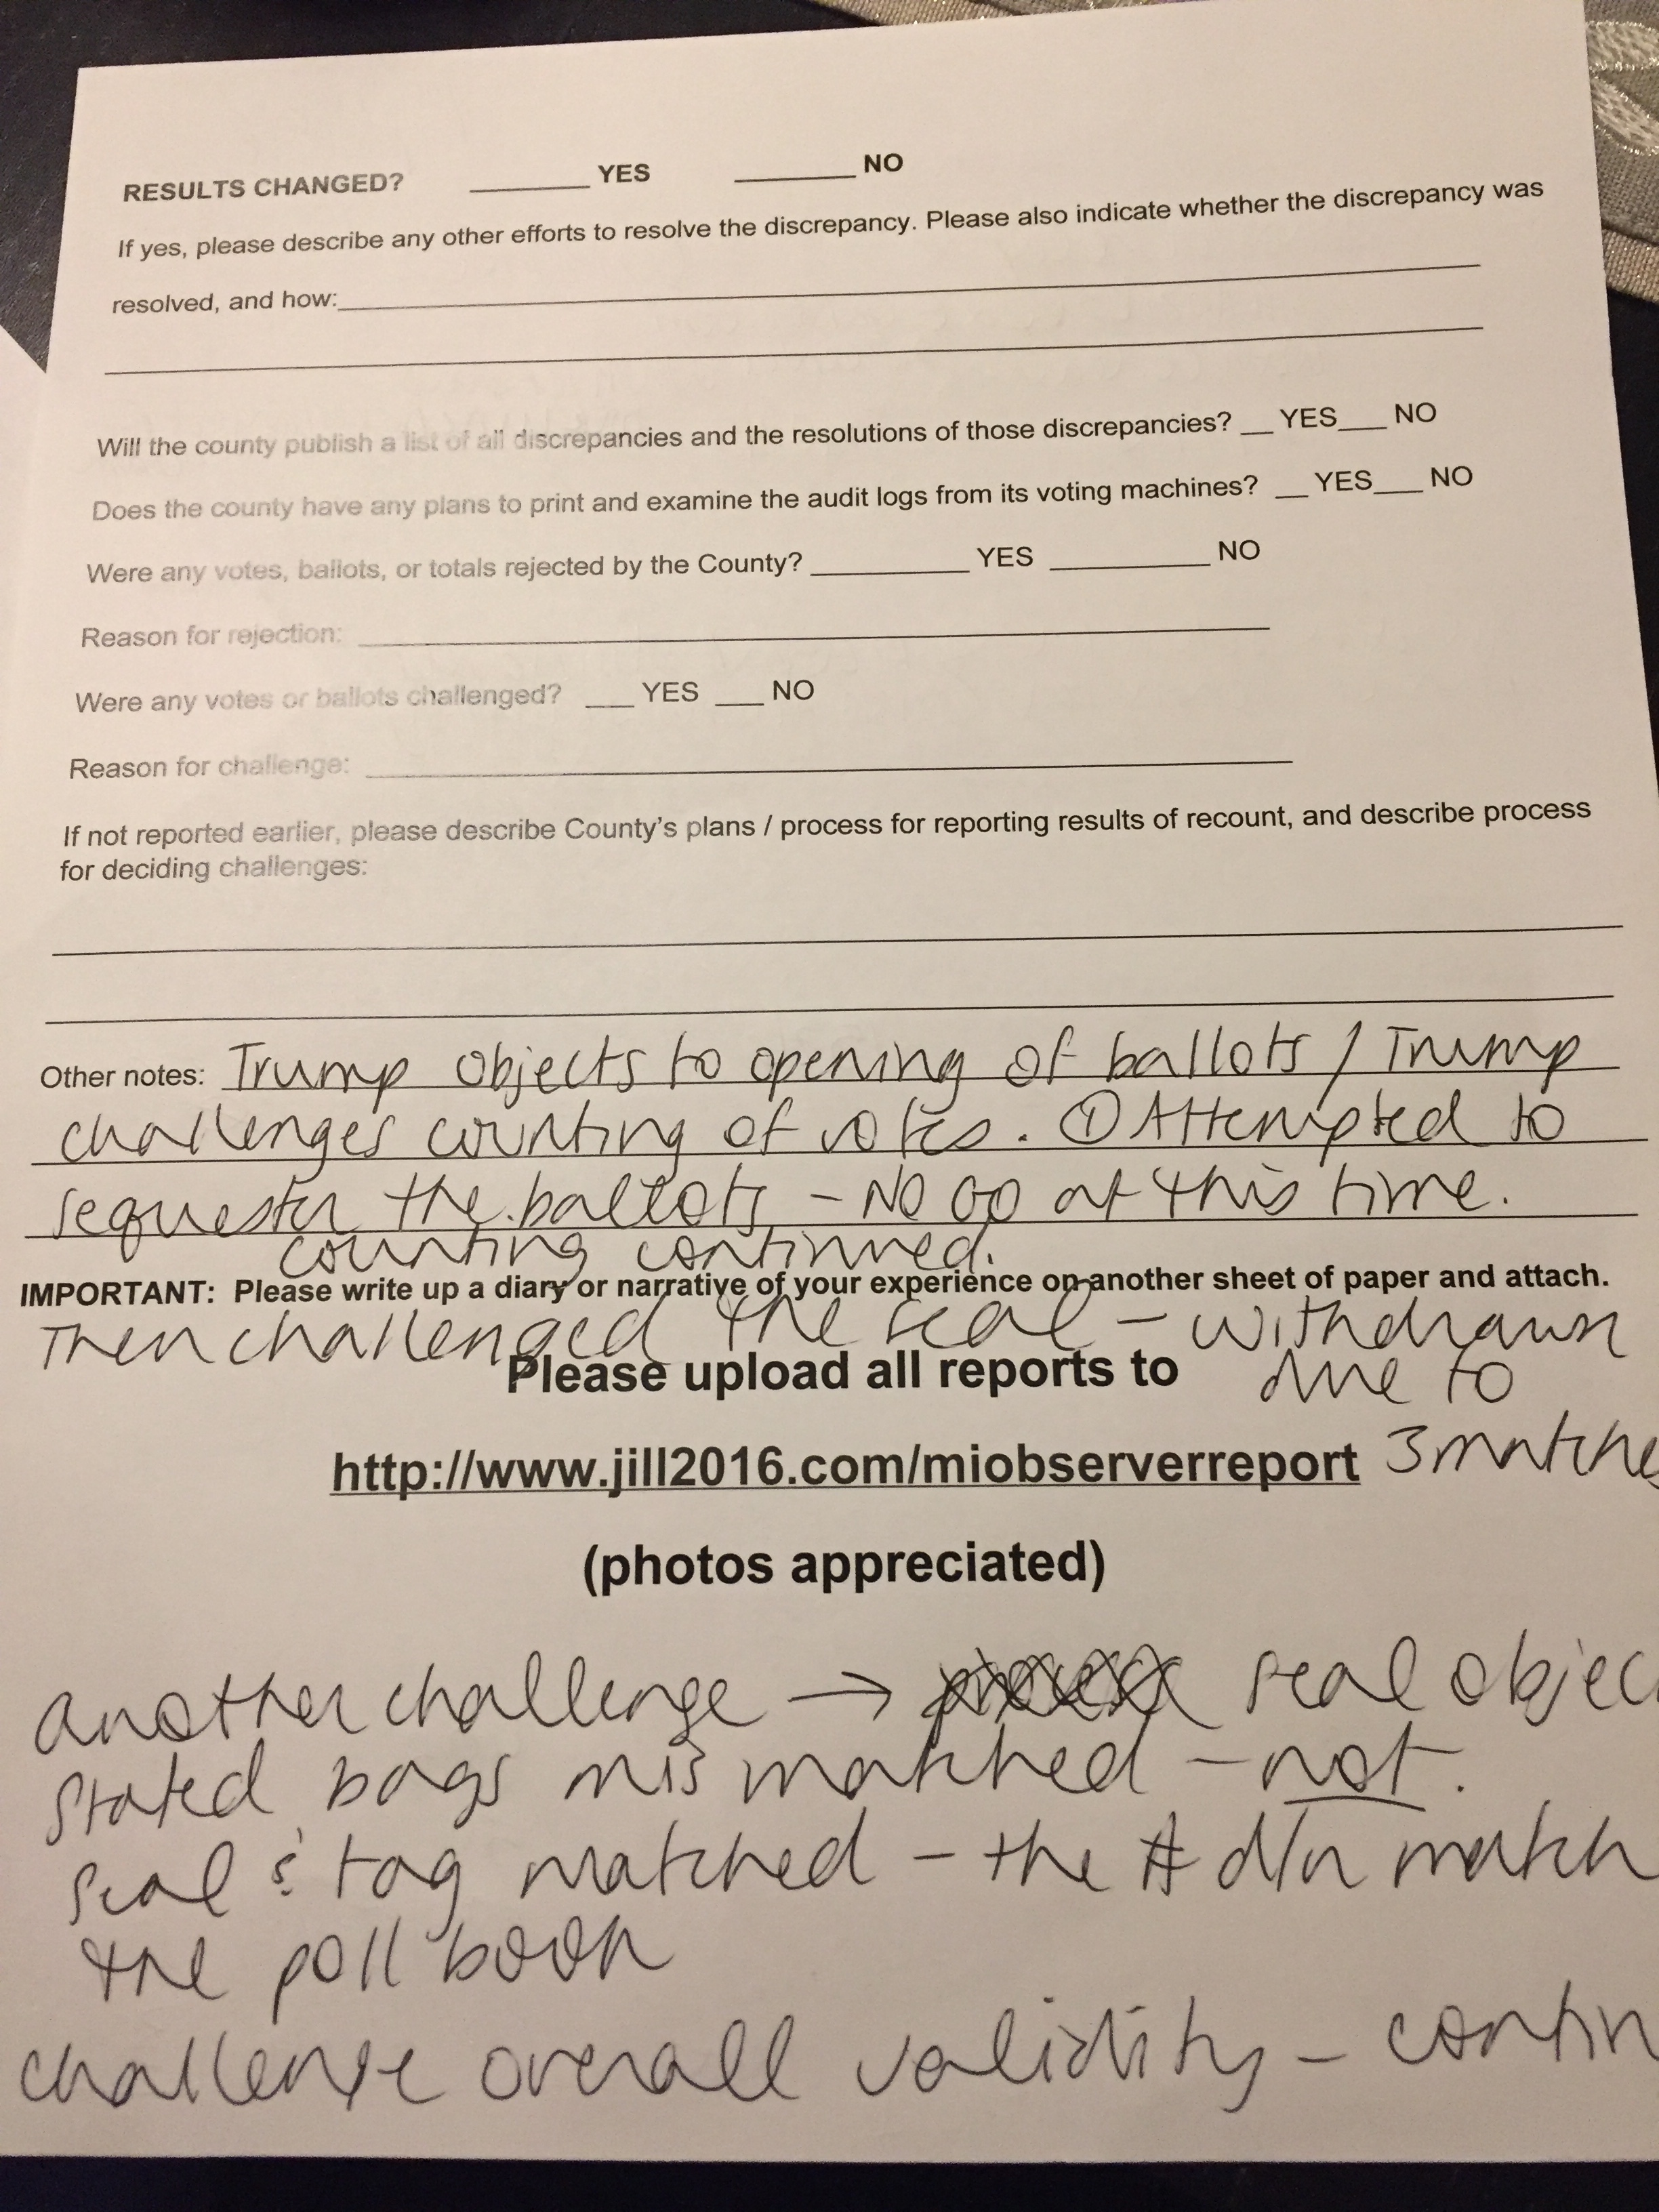 RESULTS CHANGED? ________ YES ________ NO
If yes, please describe any other efforts to resolve the discrepancy. Please also indicate whether the discrepancy was
resolved, and how:
Will the county publish a list of all discrepancies and the resolutions of those discrepancies? __ YES___ NO
Does the county have any plans to print and examine the audit logs from its voting machines? __ YES___ NO
Were any votes, ballots, or totals rejected by the County? __________ YES __________ NO
Reason for rejection:
Were any votes or ballots challenged? ___ YES ___ NO
Reason for challenge:
If not reported earlier, please describe County's plans / process for reporting results of recount, and describe process
for deciding challenges:
Other notes: Trump objects to opening of ballots / Trump
challenges counting of votes. ① Attempted to
sequester the ballots - No Go at this time.
counting continued.
IMPORTANT: Please write up a diary or narrative of your experience on another sheet of paper and attach.
Then challenged the seal - withdrawn
Please upload all reports to due to
http://www.jill2016.com/miobserverreport 3 matche
(photos appreciated)
another challenge → seal objec
stated bags mismatched - not.
seal & tag matched - the # d/n match
the poll book
challenge overall validity - contin